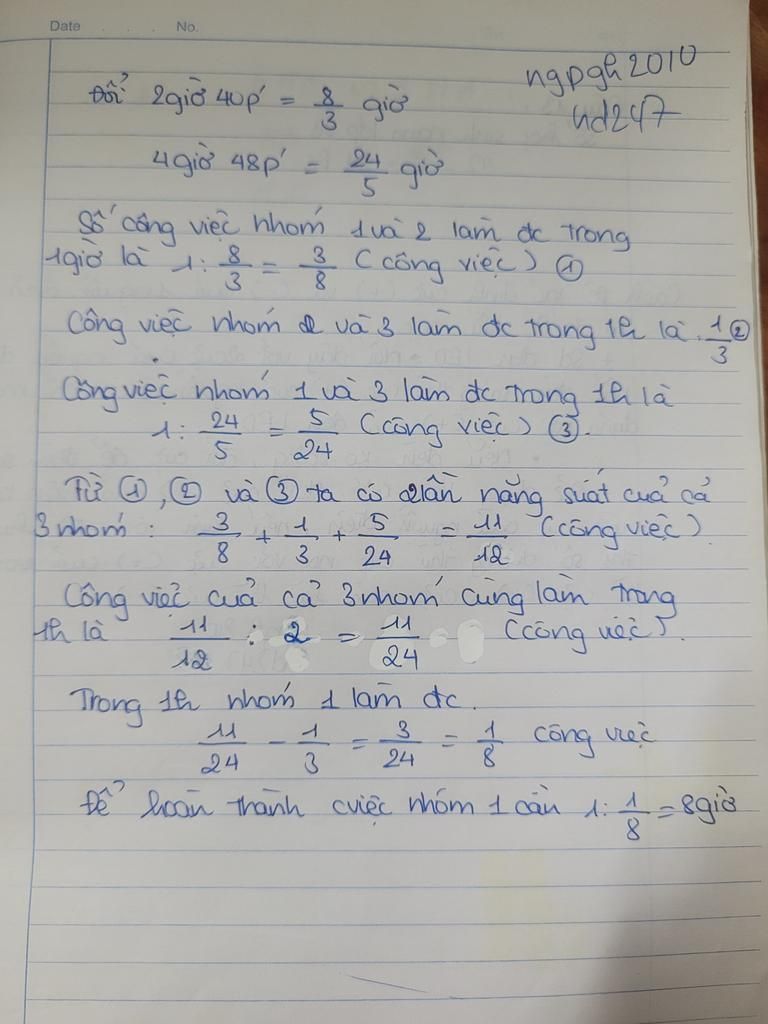 Date . . . No.
ngpgh2010
hd247
Đổi 2giờ 40p' = 8/3 giờ
4giờ 48p' = 24/5 giờ
Số công việc nhóm 1 và 2 làm đc trong
1giờ là 1: 8/3 = 3/8 (công việc) ①
Công việc nhóm 2 và 3 làm đc trong 1h là 1/3 ②
Công việc nhóm 1 và 3 làm đc trong 1h là
1: 24/5 = 5/24 (công việc) ③.
Từ ①, ② và ③ ta có 2lần năng suất cuả cả
3 nhóm: 3/8 + 1/3 + 5/24 = 11/12 (công việc)
Công việc cuả cả 3 nhóm cùng làm trong
1h là 11/12 : 2 = 11/24 (công việc).
Trong 1h nhóm 1 làm đc.
11/24 - 1/3 = 3/24 = 1/8 công việc
Để hoàn thành cviệc nhóm 1 cần 1: 1/8 = 8giờ